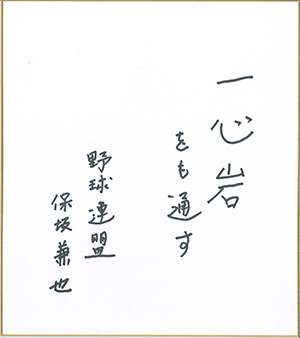 一心岩
をも通す
野球連盟
保坂兼也